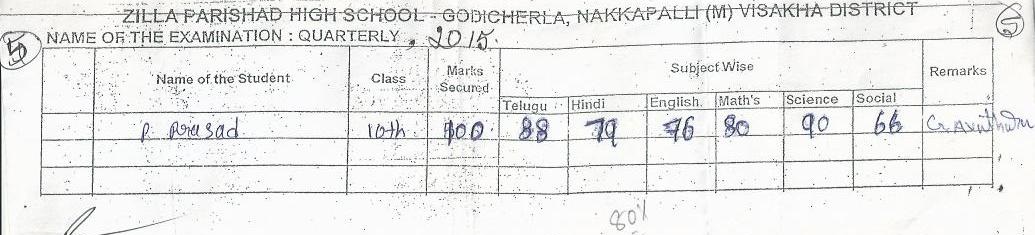 ZILLA PARISHAD HIGH SCHOOL - GODICHERLA, NAKKAPALLI (M) VISAKHA DISTRICT
5
NAME OF THE EXAMINATION : QUARTERLY, 2015.
Name of the Student Class Marks Secured Subject Wise Remarks
Telugu Hindi English. Math's Science Social
P. Prasad 10th 100 88 79 76 80 90 66
80%